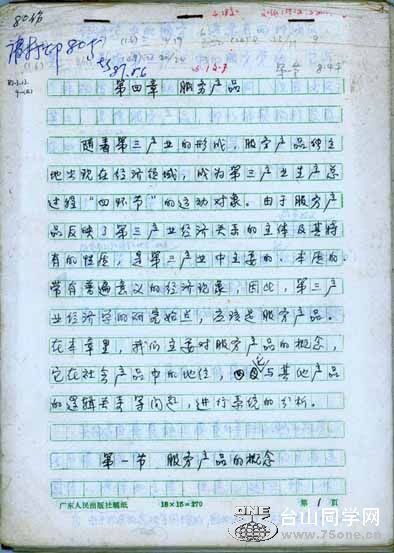 80份
请打印80份
87.5.6
第四章 服务产品
随着第三产业的形成，服务产品独立
地出现在经济领域，成为第三产业生产总
过程“四环节”的运动对象。由于服务产
品反映了第三产业经济关系的主体及其特
有的性质，是第三产业中主要的、本质的、
带有普遍意义的经济现象，因此，第三产
业经济学的研究始点，应该是服务产品。
在本章里，我们主要对服务产品的概念，
它在社会产品中的地位，以及与其他产品
的逻辑关系等问题，进行系统的分析。
第一节 服务产品的概念
广东人民出版社稿纸 18×15=270 第 1 页
ONE 台山同学网
www.75one.cn